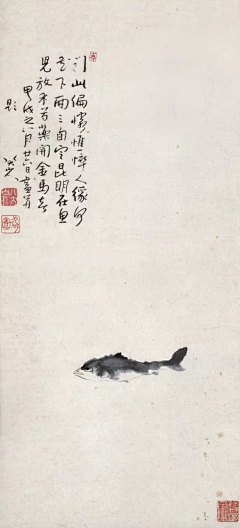 到此偏憐憔悴人緣何
花下兩三旬定昆明在魚
兒放木芍藥開金馬春
甲戌之八月廿六日畫并
題 八大山人